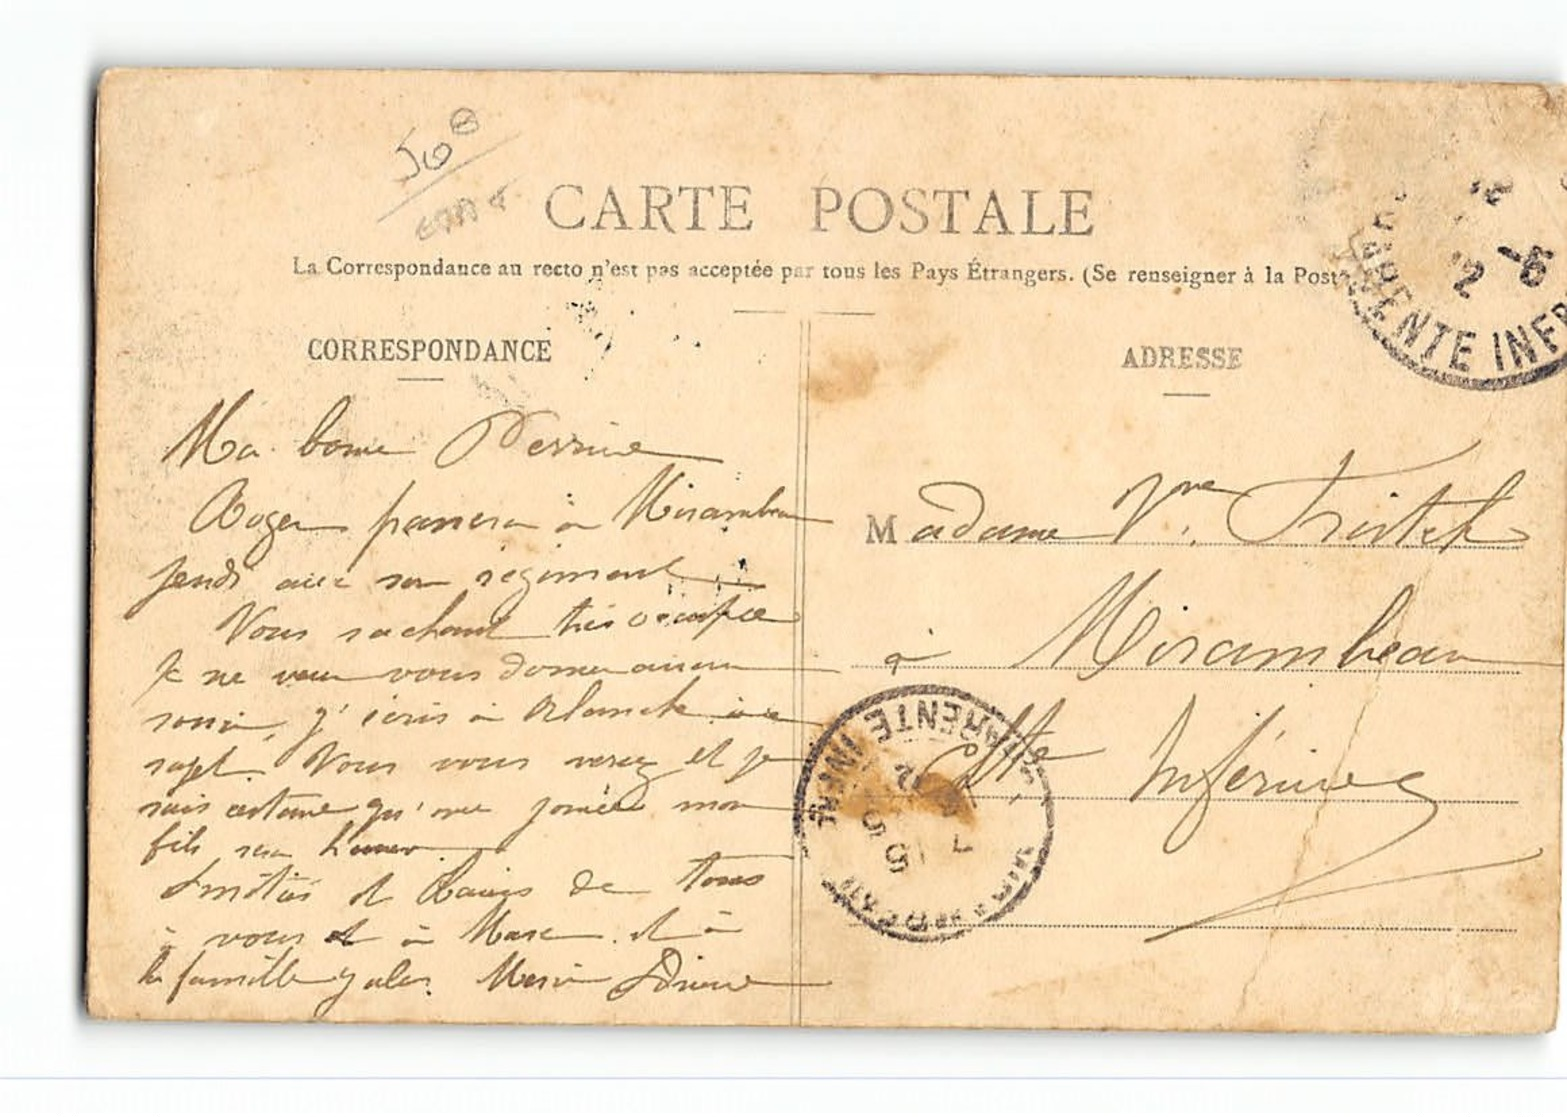 560
CARTE POSTALE
La Correspondance au recto n'est pas acceptée par tous les Pays Étrangers. (Se renseigner à la Poste
CORRESPONDANCE
Ma bonne Perrine
Roger passera à Mirambeau
jeudi avec son régiment
Vous sachant très occupée
je ne veux vous donner aucun
souci, j'écris à Blanche à ce
sujet. Vous vous verrez et je
suis certaine qu'une journée mon
fils sera
Amitiés et baisers de tous
à vous et à Marc et à
la famille
ADRESSE
Madame Vve
à Mirambeau
Chte Inférieure
12 -6
CHARENTE INFRE
CHARENTE INFRE